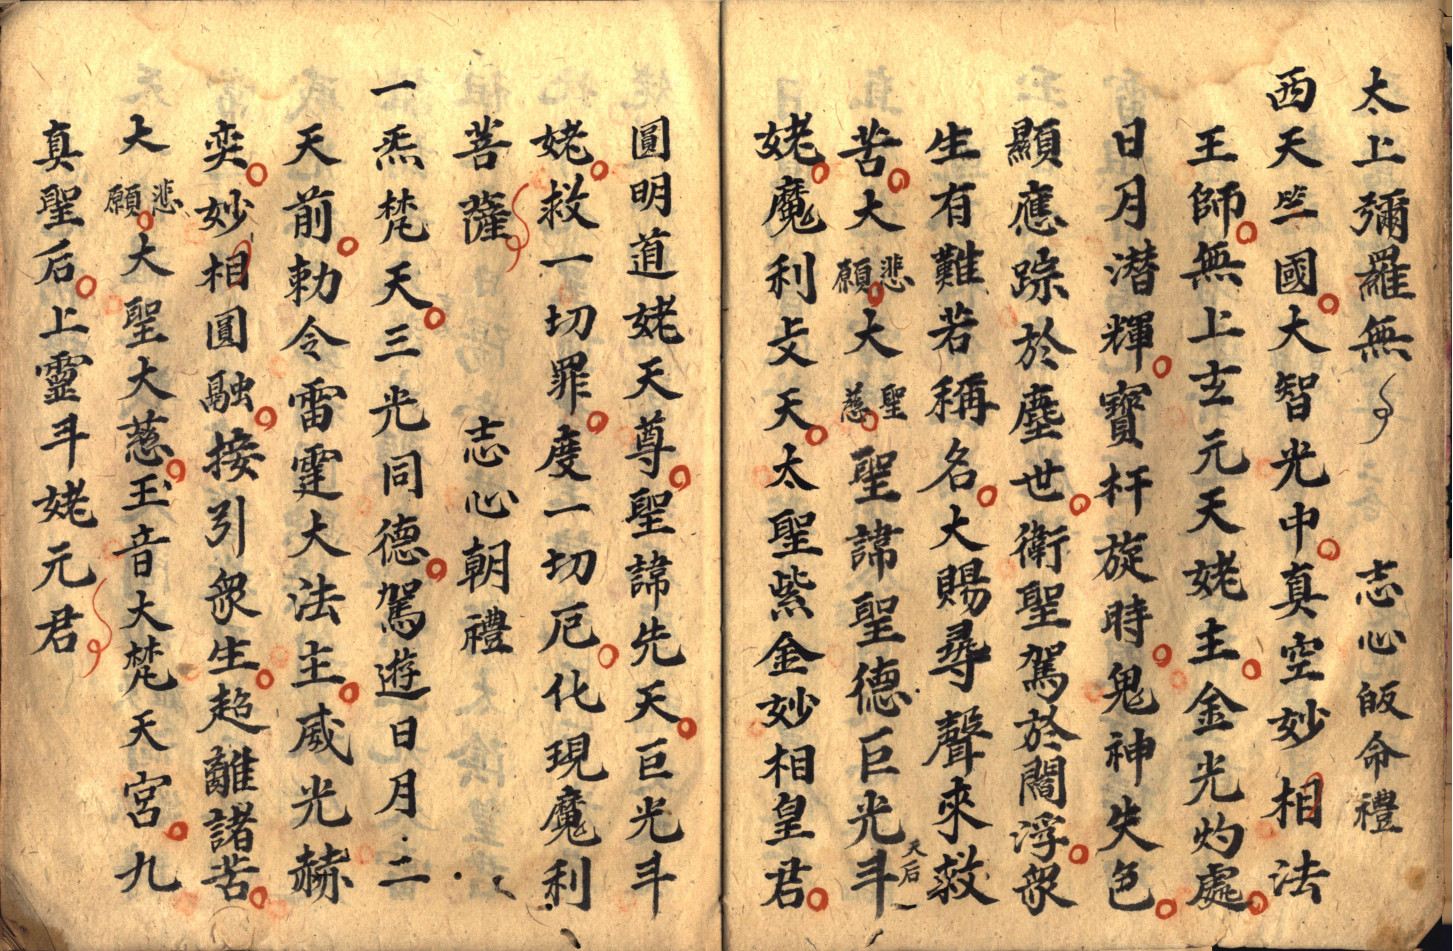 太上彌羅無 志心皈命禮
西天竺國大智光中真空妙相法
王師無上玄元天姥主金光灼處
日月潛輝寶杵旋時鬼神失色
顯應踪於塵世衛聖駕於閻浮衆
生有難若稱名大賜尋聲來救
苦大悲願大聖慈聖諱聖德巨光斗天后
姥魔利攴天太聖紫金妙相皇君
圓明道姥天尊聖諱先天巨光斗
姥救一切罪度一切厄化現魔利
菩薩 志心朝禮
一炁梵天三光同德駕遊日月二
天前勅令雷霆大法主威光赫
奕妙相圓融接引衆生超離諸苦
大悲願大聖大慈玉音大梵天宮九
真聖后上靈斗姥元君